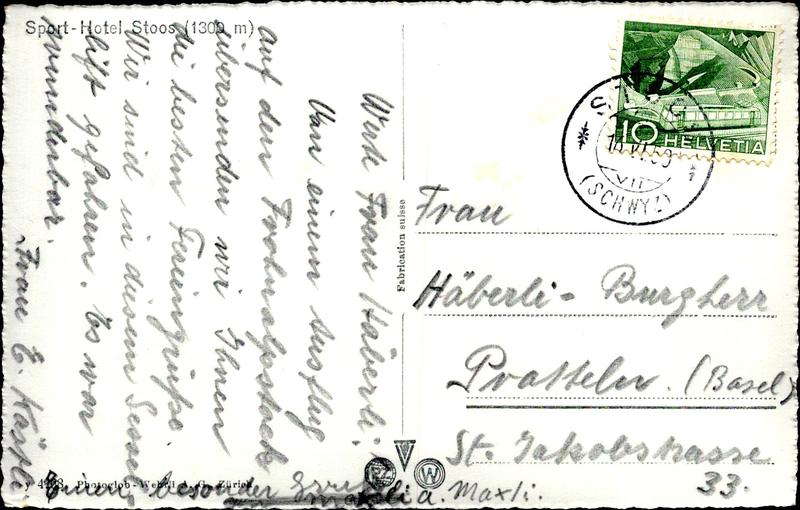 Sport-Hotel Stoos (1300 m)
Werte Frau Häberli!
Von einem Ausflug
auf den Fronalpstock
übersenden wir Ihnen
die besten Feriengrüsse.
Wir sind in diesem Sessel
lift gefahren. Es war
wunderbar.
Frau E.
besonder
a. Maxli.
4498 Photoglob-Wehrli A. G., Zürich
Fabrication suisse
PZ W
10 HELVETIA
(SCHWYZ)
VII
Frau
Häberli-Burgherr
Pratteln. (Basel)
St. Jakobstrasse
33.